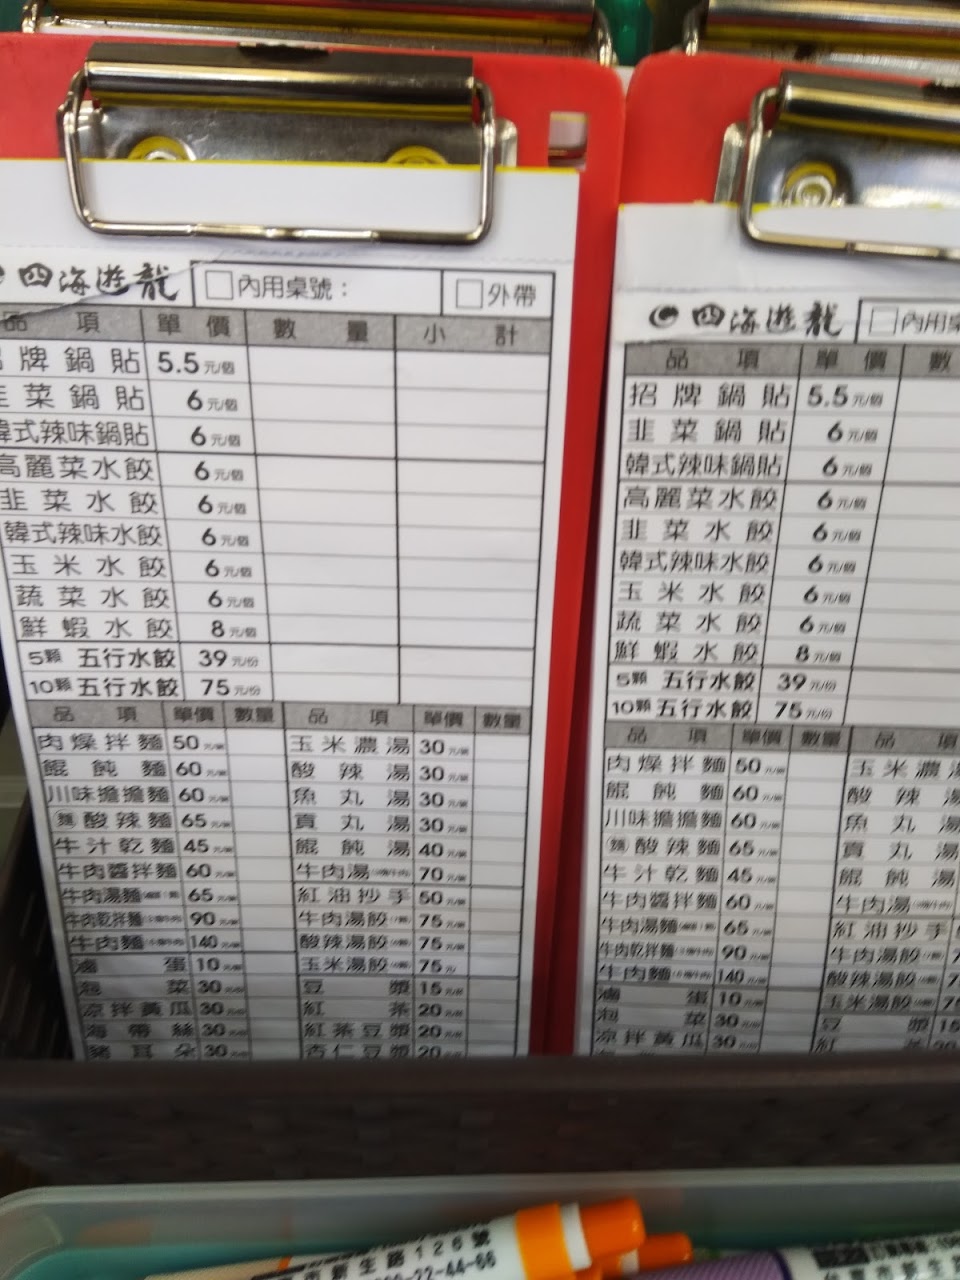 四海遊龍 □內用桌號： □外帶
品項 單價 數量 小計
招牌鍋貼 5.5元/個
韭菜鍋貼 6元/個
韓式辣味鍋貼 6元/個
高麗菜水餃 6元/個
韭菜水餃 6元/個
韓式辣味水餃 6元/個
玉米水餃 6元/個
蔬菜水餃 6元/個
鮮蝦水餃 8元/個
5顆 五行水餃 39元/份
10顆 五行水餃 75元/份
品項 單價 數量 品項 單價 數量
肉燥拌麵 50 玉米濃湯 30
餛飩麵 60 酸辣湯 30
川味擔擔麵 60 魚丸湯 30
酸辣麵 65 貢丸湯 30
牛汁乾麵 45 餛飩湯 40
牛肉醬拌麵 60 牛肉湯 70
牛肉湯麵 65 紅油抄手 50
牛肉乾拌麵 90 牛肉湯餃 75
牛肉麵 140 酸辣湯餃 75
滷蛋 10 玉米湯餃 75
泡菜 30 豆漿 15
涼拌黃瓜 30 紅茶 20
海帶絲 30 紅茶豆漿 20
豬耳朵 30 杏仁豆漿 20
四海遊龍 □內用桌
品項 單價 數
招牌鍋貼 5.5元/個
韭菜鍋貼 6元/個
韓式辣味鍋貼 6元/個
高麗菜水餃 6元/個
韭菜水餃 6元/個
韓式辣味水餃 6元/個
玉米水餃 6元/個
蔬菜水餃 6元/個
鮮蝦水餃 8元/個
5顆 五行水餃 39元/份
10顆 五行水餃 75元/份
品項 單價 數量 品項
肉燥拌麵 50 玉米濃湯
餛飩麵 60 酸辣湯
川味擔擔麵 60 魚丸湯
酸辣麵 65 貢丸湯
牛汁乾麵 45 餛飩湯
牛肉醬拌麵 60 牛肉湯
牛肉湯麵 65 紅油抄手
牛肉乾拌麵 90 牛肉湯餃
牛肉麵 140 酸辣湯餃
滷蛋 10 玉米湯餃
泡菜 30 豆漿 15
涼拌黃瓜 30 紅茶
市新生路126號
-22-44-66
市新生